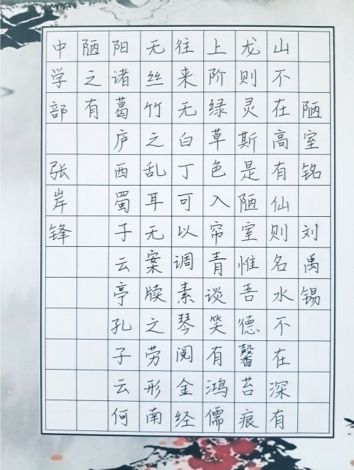 陋室铭 刘禹锡
山不在高有仙则名水不在深有
龙则灵斯是陋室惟吾德馨苔痕
上阶绿草色入帘青谈笑有鸿儒
往来无白丁可以调素琴阅金经
无丝竹之乱耳无案牍之劳形南
阳诸葛庐西蜀子云亭孔子云何
陋之有
中学部 张岸锋